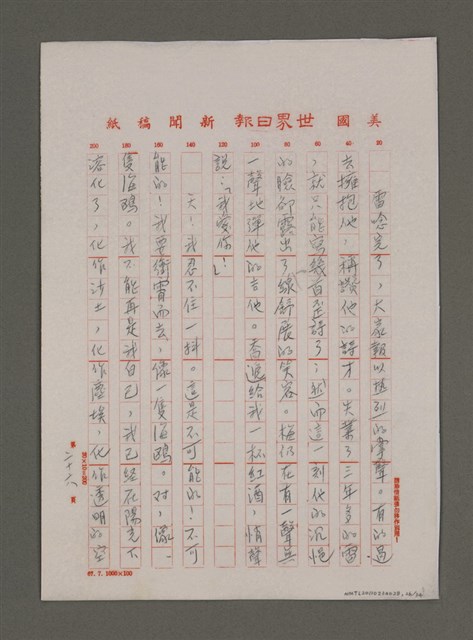 美國世界日報新聞稿紙
20
40
60
80
100
120
140
160
180
200
雷唸完了，大家報以熱烈的掌聲。有的過
去擁抱他，稱讚他的詩才。失業了三年多的雷
，就只能寫幾首歪詩了；然而這一刻他的沉悒
的臉卻露出了線舒展的笑容。梅仍在有一聲無
一聲地彈他的吉他。喬遞給我一杯紅酒，悄聲
說：「我愛你！」
天！我忍不住一抖。這是不可能的！不可
能的！我要衝霄而去，像一隻海鷗。對，像
隻海鷗。我不能再是我自己，我已經在陽光下
溶化了，化作沙土，化作塵埃，化作透明的空
第二十六頁